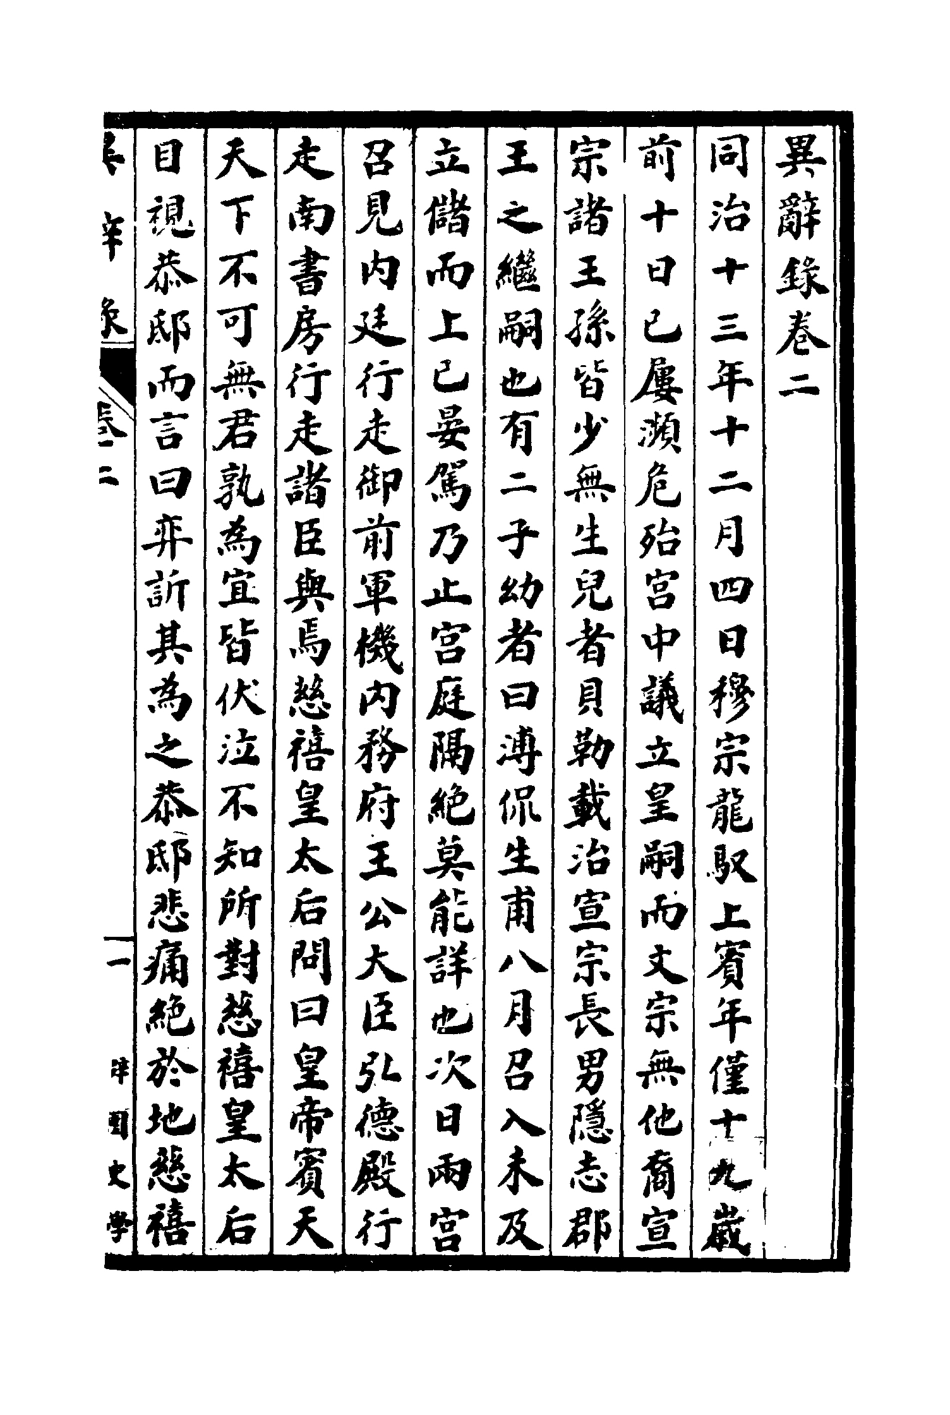 異辭錄卷二
同治十三年十二月四日穆宗龍馭上賓年僅十九歲
前十日已屢瀕危殆宮中議立皇嗣而文宗無他裔宣
宗諸王孫皆少無生兒者貝勒載治宣宗長男隱志郡
王之繼嗣也有二子幼者曰溥侃生甫八月召入未及
立儲而上已晏駕乃止宮庭隔絕莫能詳也次日兩宮
召見內廷行走御前軍機內務府王公大臣弘德殿行
走南書房行走諸臣與焉慈禧皇太后問曰皇帝賓天
天下不可無君孰為宜皆伏泣不知所對慈禧皇太后
目視恭邸而言曰弈訢其為之恭邸悲痛絕於地慈禧
異辭錄 卷二 一 辟園史學